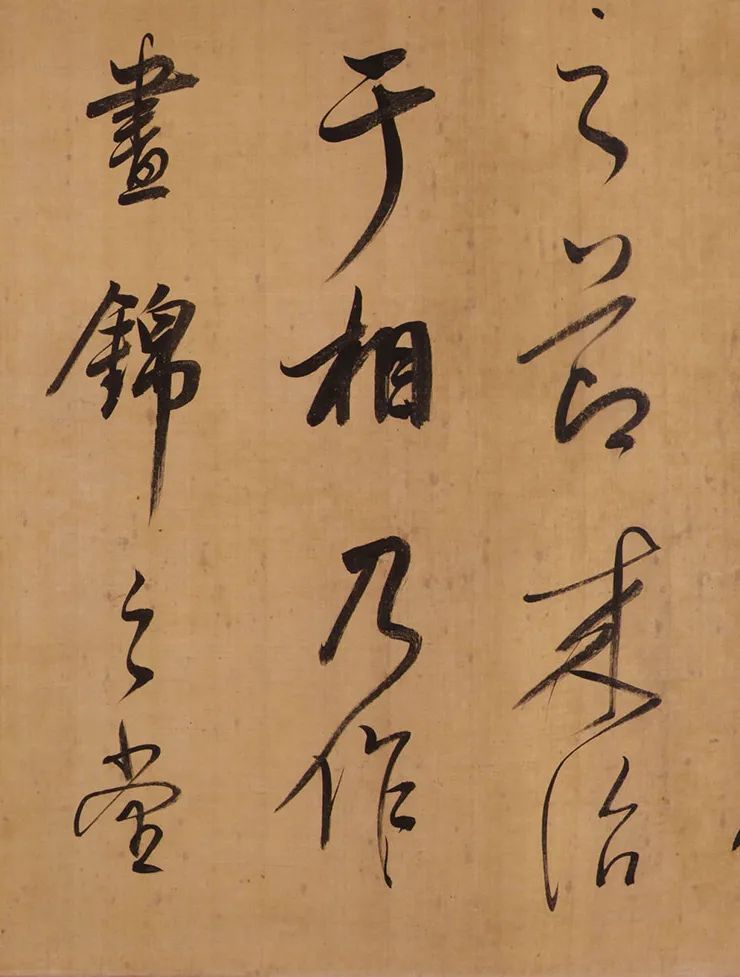 之節來治
于相乃作
晝錦之堂